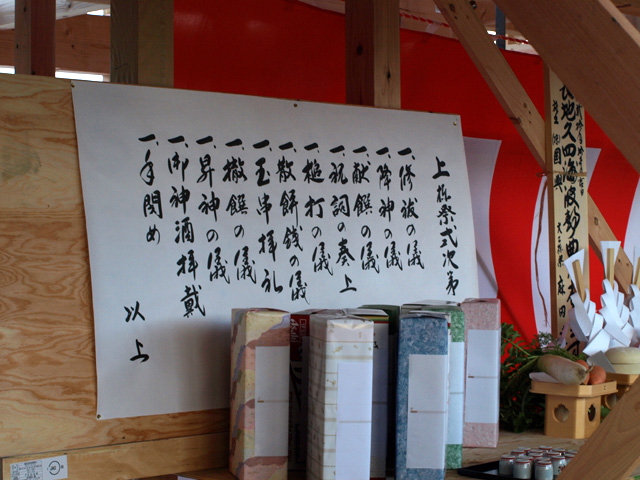 上棟祭式次第
一、修祓の儀
一、降神の儀
一、献饌の儀
一、祝詞の奏上
一、槌打の儀
一、散餅銭の儀
一、玉串拝礼
一、撤饌の儀
一、昇神の儀
一、御神酒拝戴
一、手閉め
以上